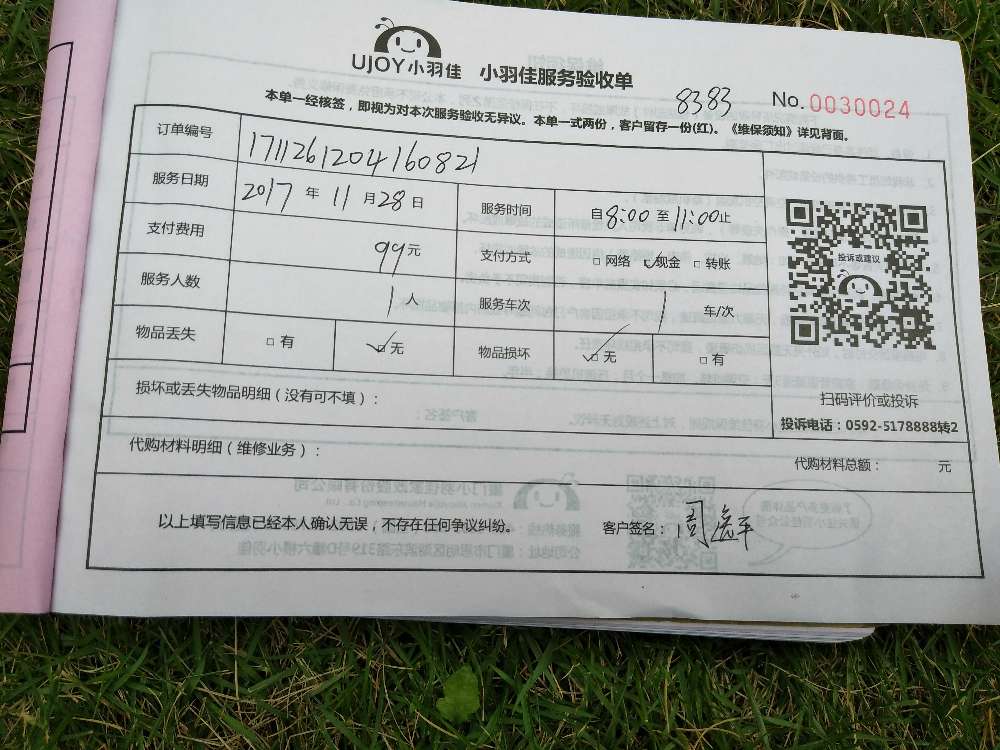 UJOY小羽佳 小羽佳服务验收单
8383 No. 0030024
本单一经核签，即视为对本次服务验收无异议。本单一式两份，客户留存一份(红)。《维保须知》详见背面。
订单编号 1711261204160821
服务日期 2017 年 11 月 28 日 服务时间 自 8:00 至 11:00 止
支付费用 99 元 支付方式 □ 网络 ☑ 现金 □ 转账
服务人数 1 人 服务车次 1 车/次
物品丢失 □ 有 ☑ 无 物品损坏 ☑ 无 □ 有
投诉或建议
扫码评价或投诉
投诉电话：0592-5178888转2
损坏或丢失物品明细（没有可不填）：
代购材料明细（维修业务）： 代购材料总额： 元
以上填写信息已经本人确认无误，不存在任何争议纠纷。 客户签名：周 平